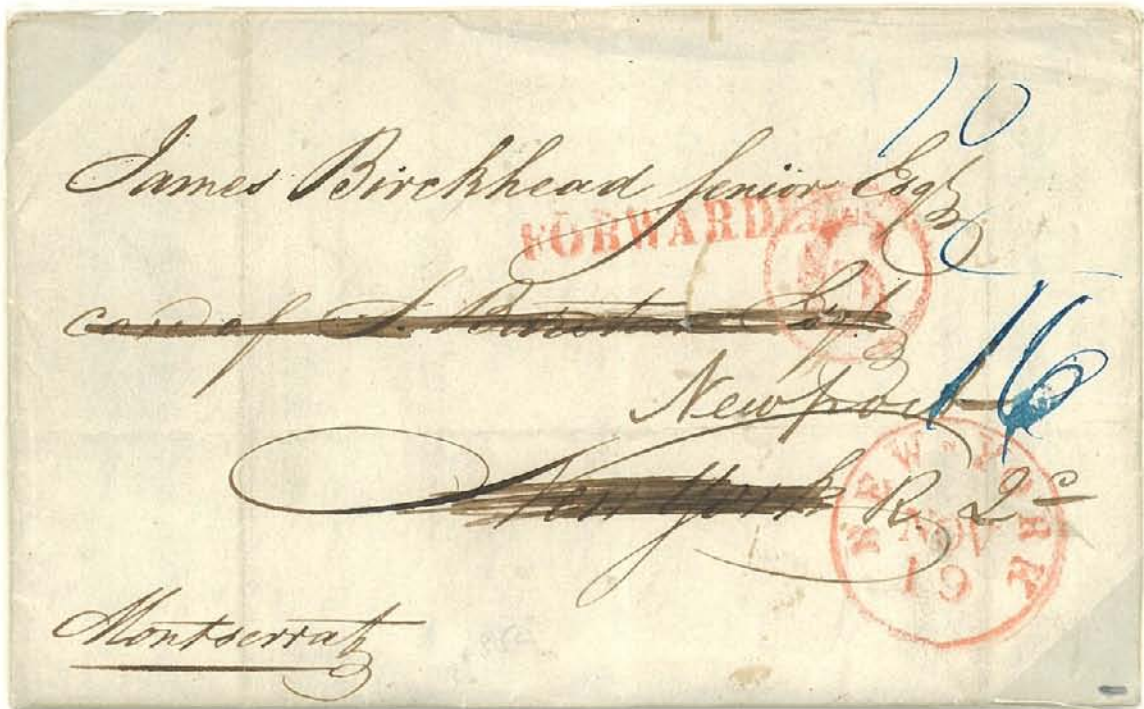 10
James Birckhead Senior Esqr
FORWARD
6
care of Esqr
16
Newport
New York R. 2c
NEW-YORK
NOV
19
Montserrat